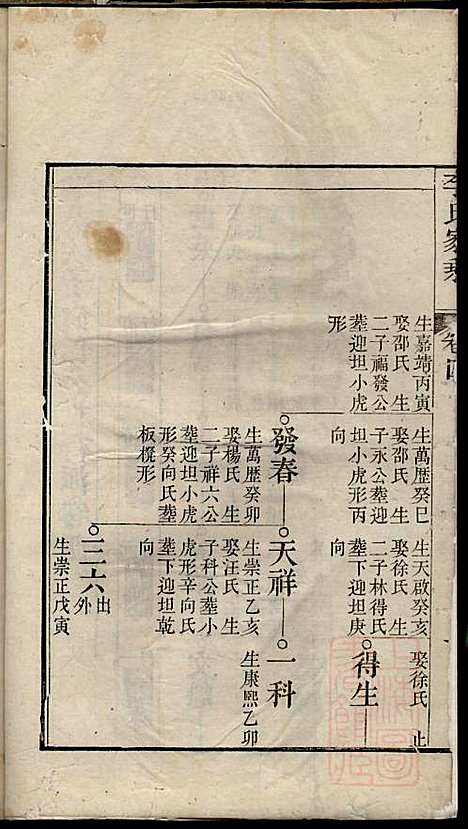 氏家乘
卷四
生嘉靖丙寅
娶邵氏 生
二子福發公
塟迎坦小虎
形
生萬歴癸巳
娶邵氏 生
子永公塟迎
坦小虎形丙
向
生天啟癸亥
娶徐氏 生
二子林得氏
塟下迎坦庚
向
娶徐氏 止
得生
發春
生萬歴癸卯
娶楊氏 生
二子祥六公
塟迎坦小虎
形癸向氏塟
板櫈形
天祥
生崇正乙亥
娶汪氏 生
子科公塟小
虎形辛向氏
塟下迎坦乾
向
一科
生康熙乙卯
三六
出
外
生崇正戊寅